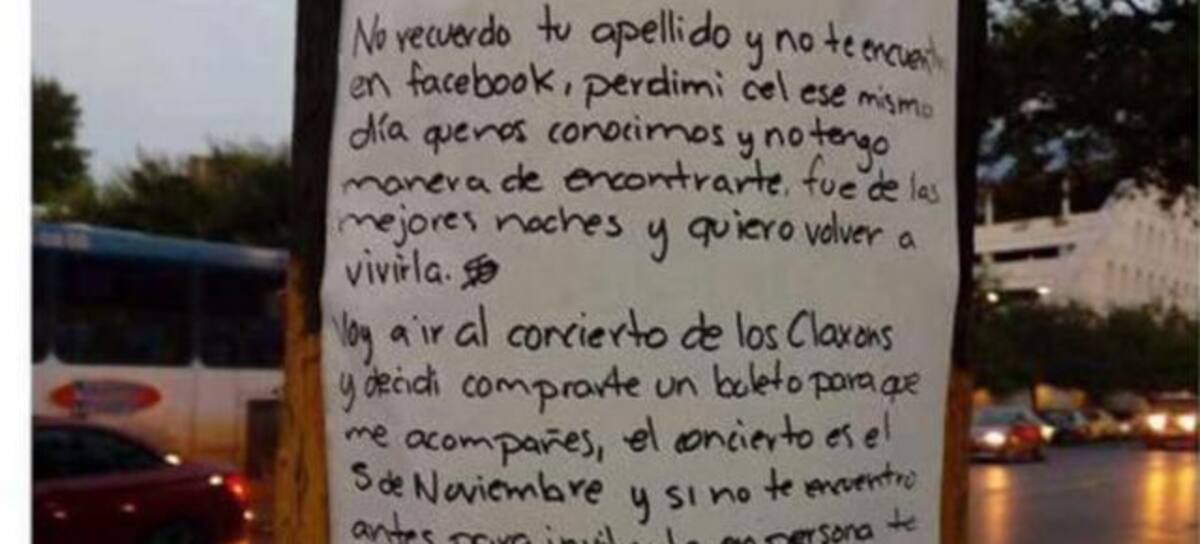 No recuerdo tu apellido y no te encuent
en facebook, perdi mi cel ese mismo
día que nos conocimos y no tengo
manera de encontrarte. fue de las
mejores noches y quiero volver a
vivirla.
Voy a ir al concierto de los Claxons
y decidi comprarte un boleto para que
me acompañes, el concierto es el
5 de Noviembre y si no te encuentro
antes para en persona te